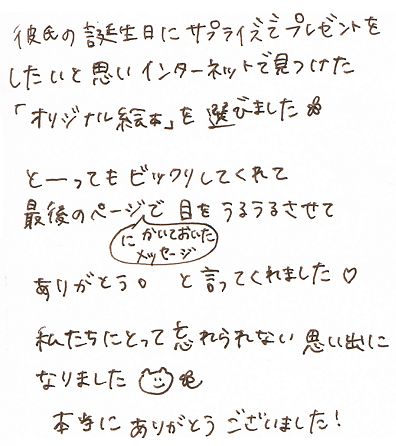 彼氏の誕生日にサプライズでプレゼントを
したいと思いインターネットで見つけた
「オリジナル絵本」を選びました
と―ってもビックリしてくれて
最後のページで目をうるうるさせて
にかいておいた
メッセージ
ありがとう。と言ってくれました♡
私たちにとって忘れられない思い出に
なりました
本当にありがとうございました!